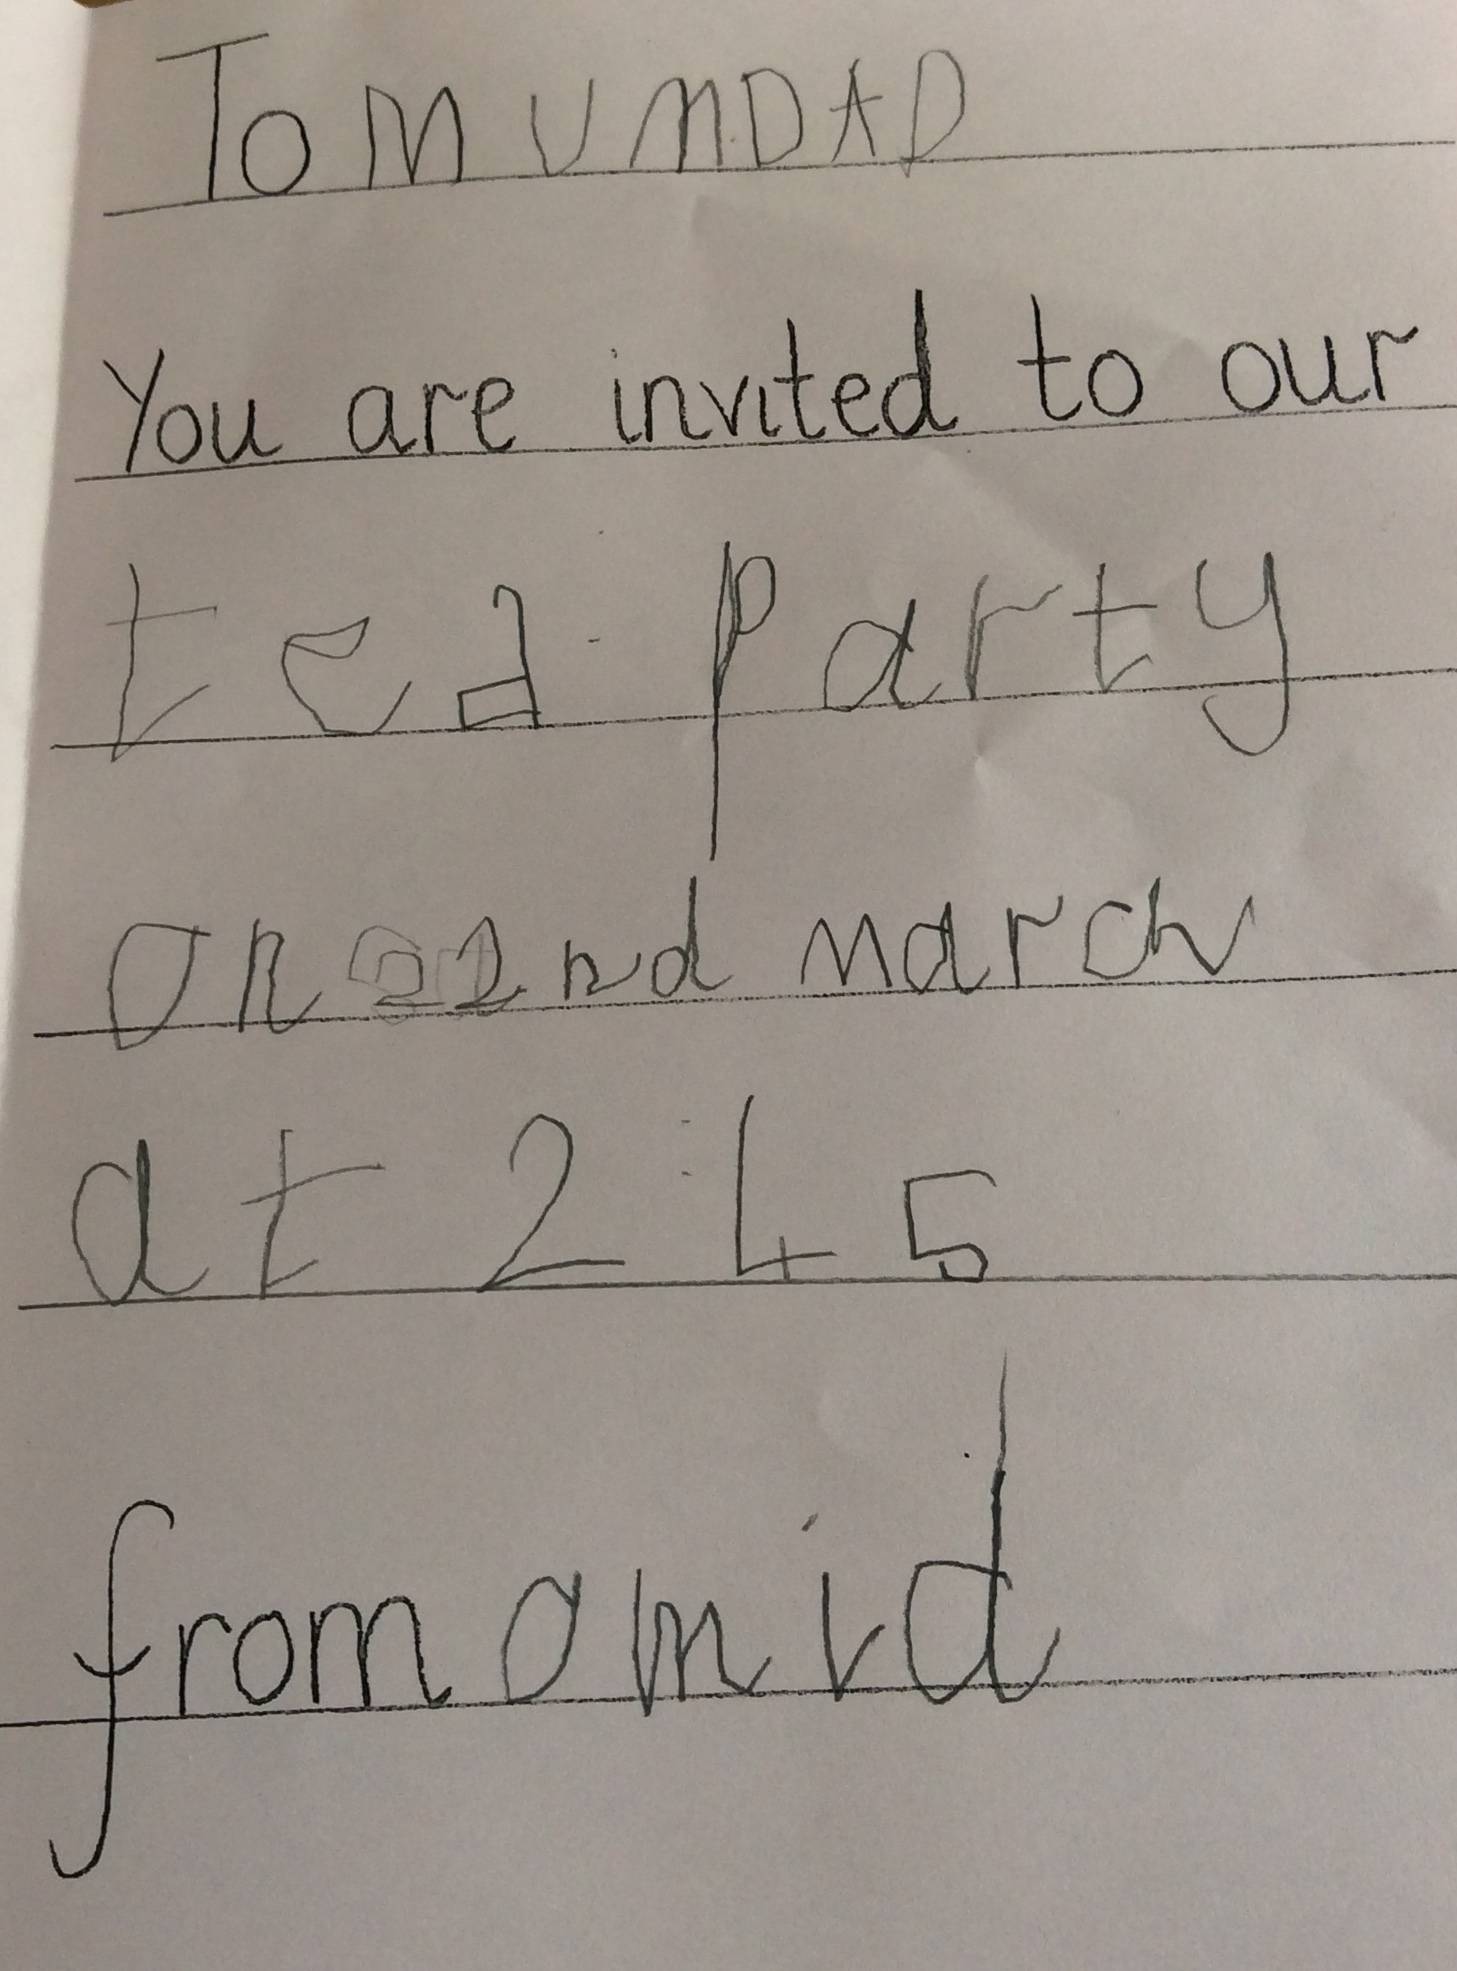 To MUMDAD
You are invited to our
tea party
on 22nd March
at 2:45
from omid